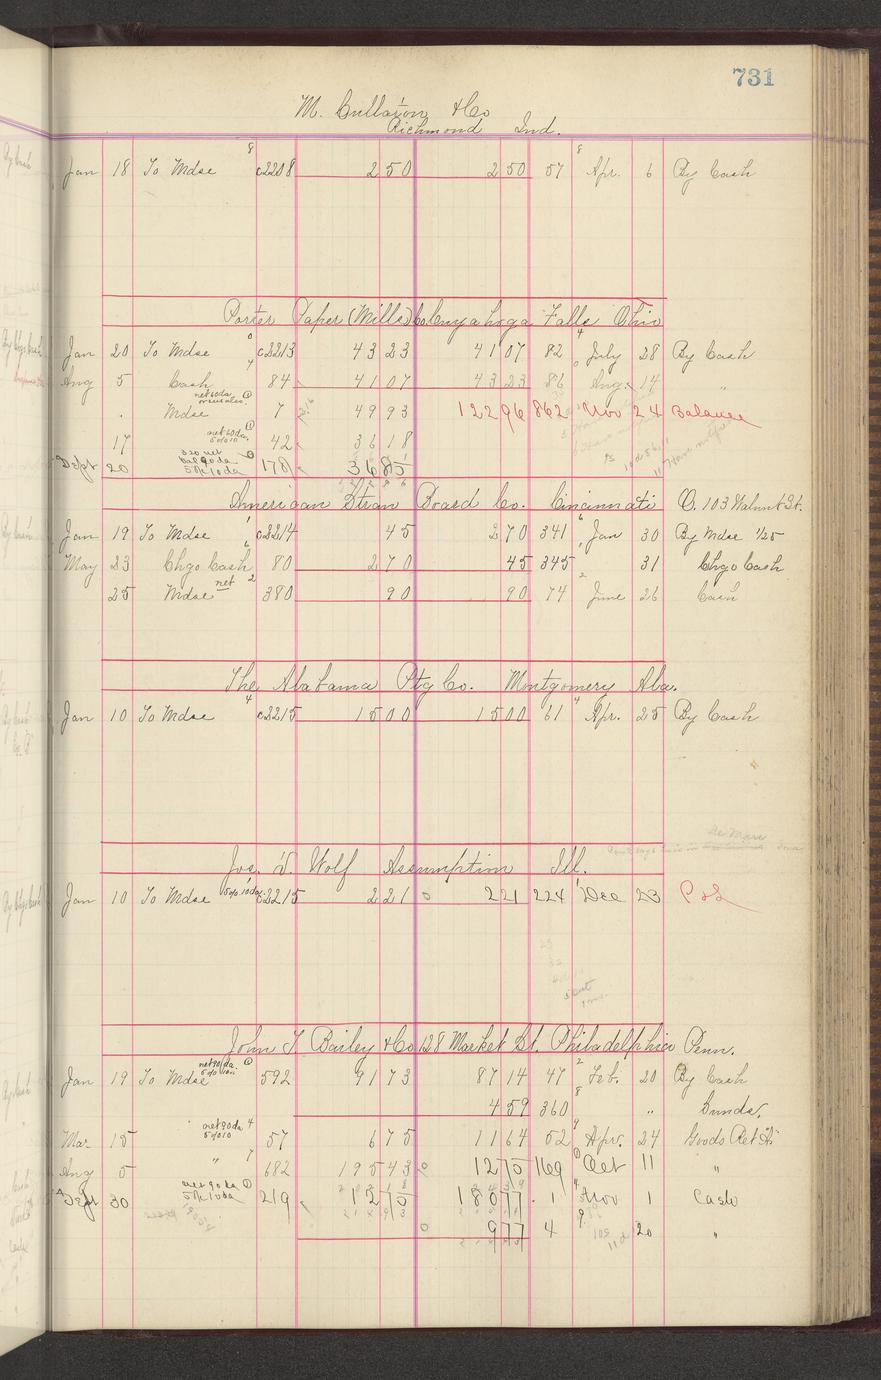 731
M. Cullaton & Co
Richmond Ind.
Jan 18 To Mdse 8 c2208 2 50 2 50 57 8 Apr. 6 By Cash
Porter Paper (Mills) Co. Cuyahoga Falls Ohio
Jan 20 To Mdse c2213 43 23 41 07 82 4 July 28 By Cash
Aug 5 Cash 84 41 07 43 23 86 Aug. 14 "
Mdse 7 49 93 122 96 862 Nov 24 Balance
17 net 60 da 5 % 10 42 36 18
Sept 20 bal 90 da 5% 10 da 178 36 85
American Straw Board Co. Cincinnati O. 103 Walnut St.
Jan 19 To Mdse c2214 45 2 70 341 6 Jan 30 By Mdse 1/25
May 23 Chgo Cash 80 2 70 45 345 31 Chgo Cash
25 Mdse net 2 380 90 90 74 2 June 26 Cash
The Alabama Ptg Co. Montgomery Ala.
Jan 10 To Mdse 4 c2215 15 00 15 00 61 4 Apr. 25 By Cash
Jos. D. Wolf Assumption Ill.
Jan 10 To Mdse 5% 10 da c2215 2 21 0 2 21 224 Dec 23 P & L
John T Bailey & Co 128 Market St. Philadelphia Penn.
Jan 19 To Mdse net 90 da. 592 91 73 87 14 47 2 Feb. 20 By Cash
4 59 360 8 " Sunds.
Mar 15 " net 90 da 5 % 10 4 57 6 75 11 64 52 9 Apr. 24 Goods Ret
Aug 5 " 7 682 195 43 0 12 75 169 Oct 11 "
Sept 30 net 90 da 5% 10 da 219 12 75 180 77 1 4 Nov 1 Cash
0 9 77 4 9 20 "